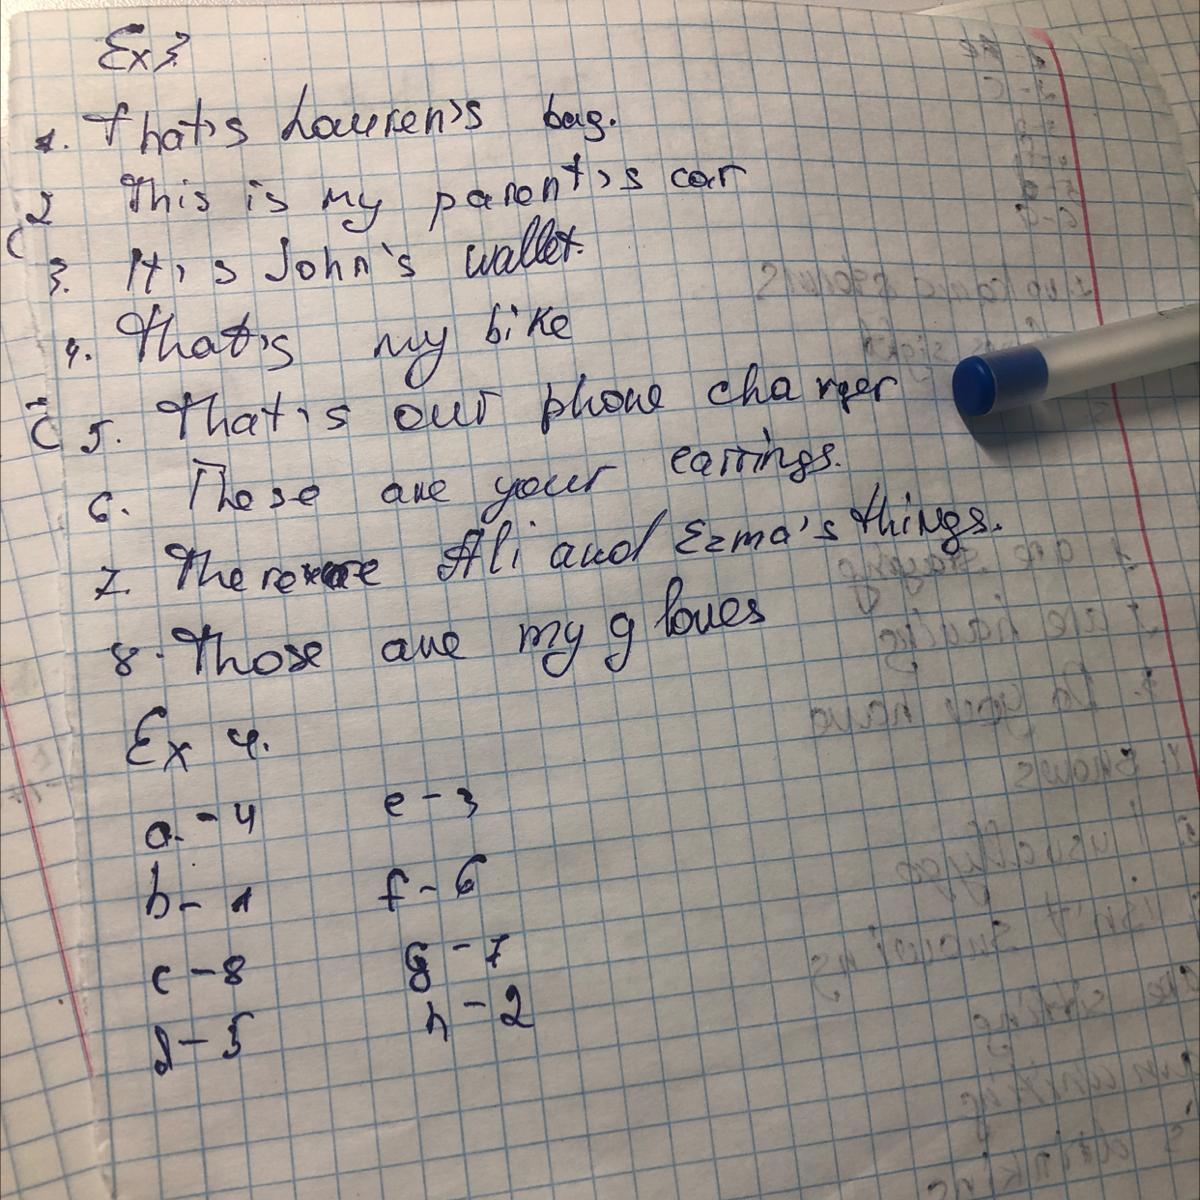 Ex 3.
1. That's Lauren's bag.
2 This is my parent's car
3. It's John's wallet.
4. That's my bike
5. That's our phone charger
6. These are your earrings.
7. There are Ali and Ezma's things.
8. Those are my gloves
Ex 4.
a - 4
b - 1
c - 8
d - 5
e - 3
f - 6
g - 7
h - 2